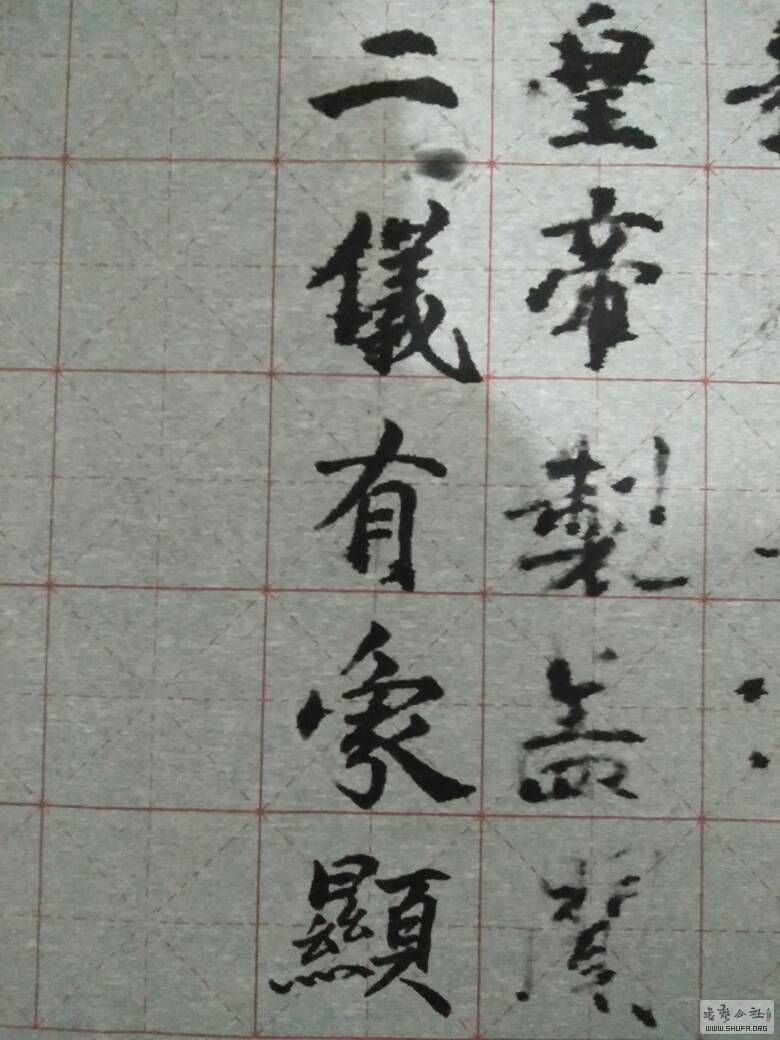 皇帝製盖
二儀有象顯
書藝公社
WWW.SHUFA.ORG